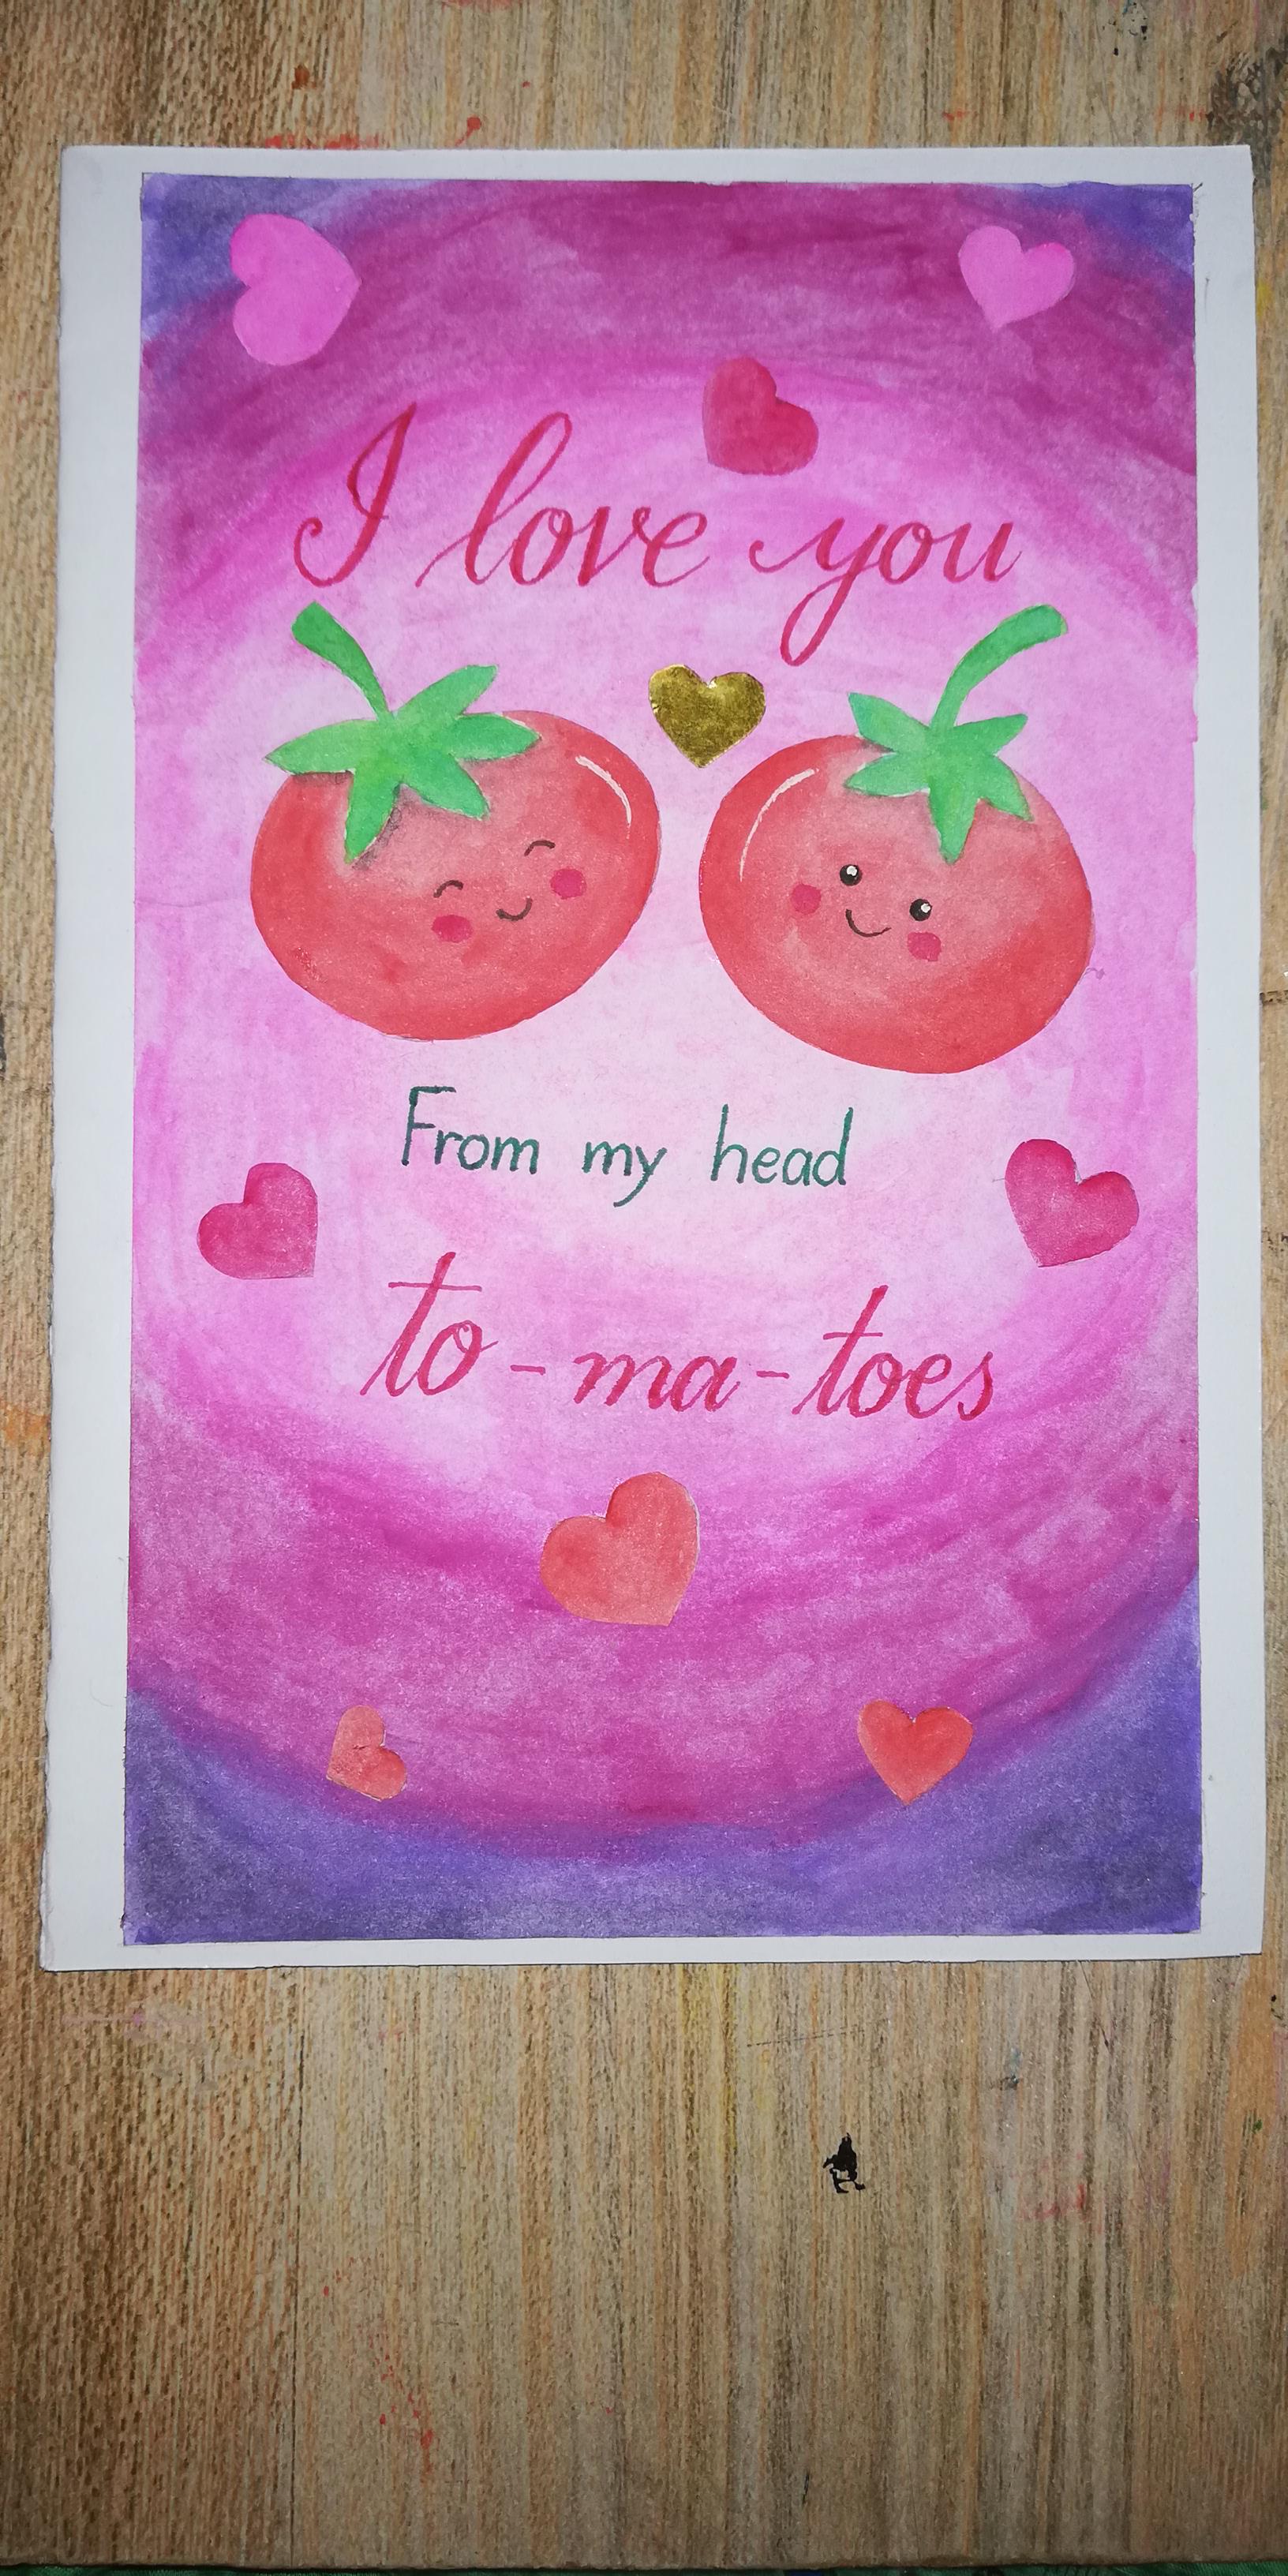 I love you
From my head
to-ma-toes